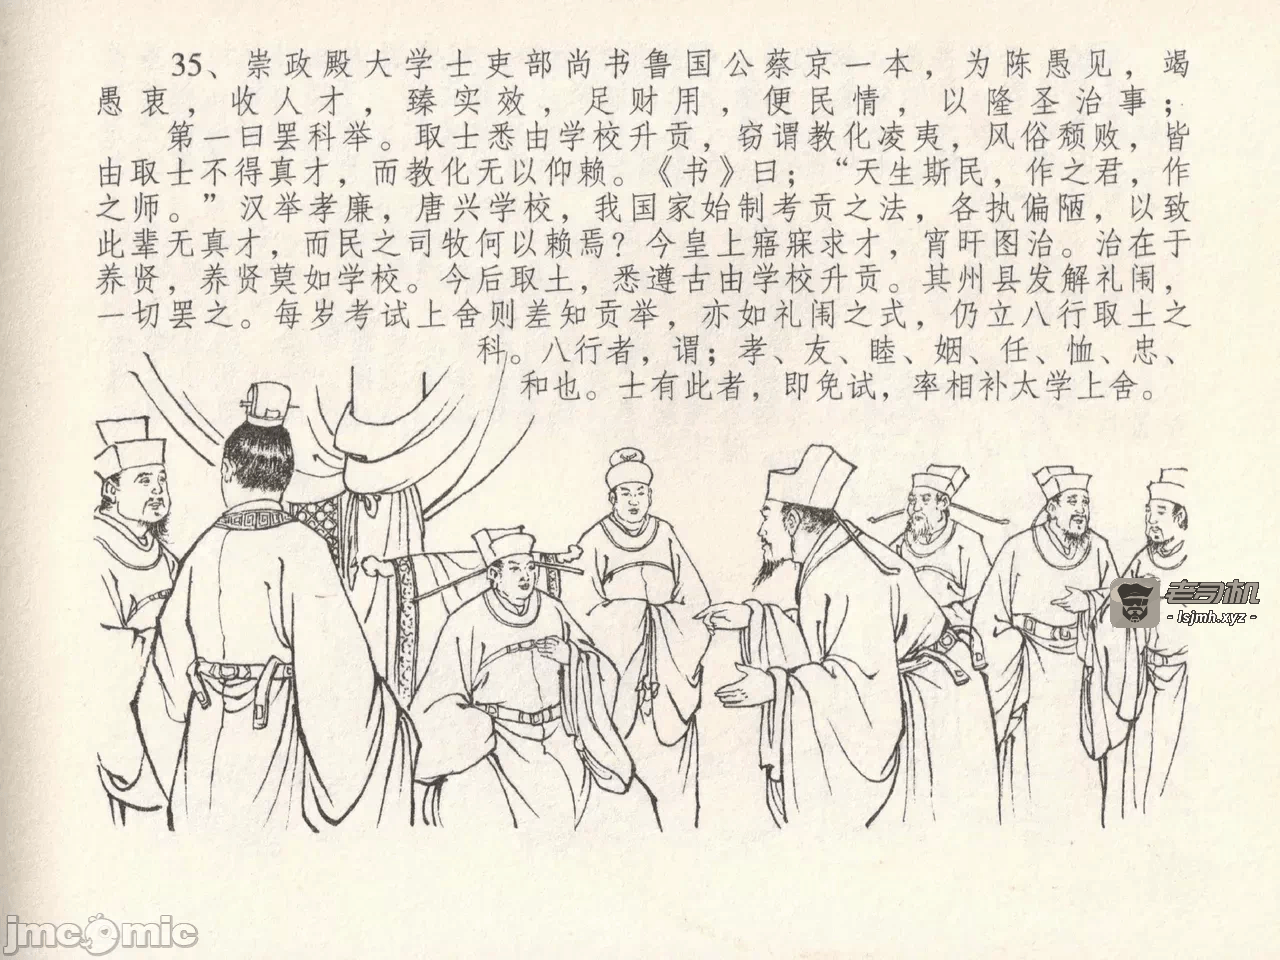 35、崇政殿大学士吏部尚书鲁国公蔡京一本，为陈愚见，竭
愚衷，收人才，臻实效，足财用，便民情，以隆圣治事；
第一曰罢科举。取士悉由学校升贡，窃谓教化凌夷，风俗颓败，皆
由取士不得真才，而教化无以仰赖。《书》曰；“天生斯民，作之君，作
之师。”汉举孝廉，唐兴学校，我国家始制考贡之法，各执偏陋，以致
此辈无真才，而民之司牧何以赖焉？今皇上寤寐求才，宵旰图治。治在于
养贤，养贤莫如学校。今后取士，悉遵古由学校升贡。其州县发解礼闱，
一切罢之。每岁考试上舍则差知贡举，亦如礼闱之式，仍立八行取士之
科。八行者，谓；孝、友、睦、姻、任、恤、忠、
和也。士有此者，即免试，率相补太学上舍。
老司机
- lsjmh.xyz -
jmcomic